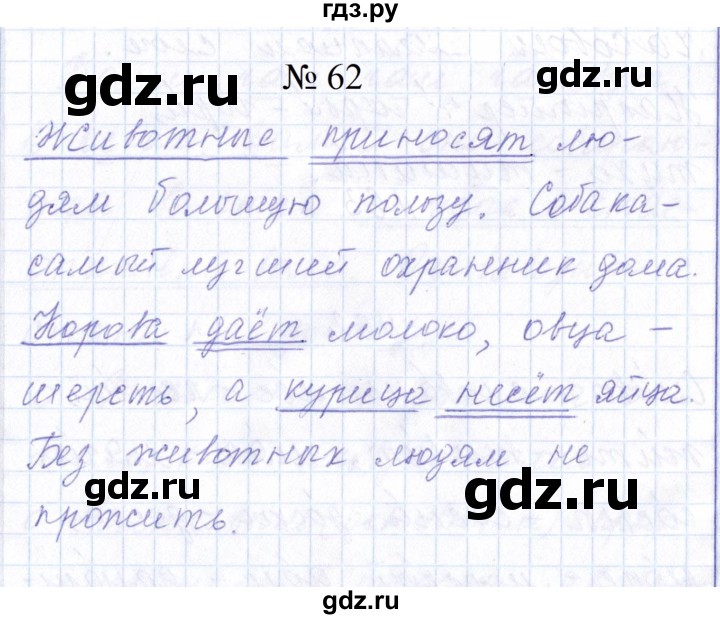 гдз.ру
gdz.ru
gdz.ru
№ 62
Животные приносят лю-
дям большую пользу. Собака-
самый лучший охранник дома.
gdz.ru
gdz.ru
Корова даёт молоко, овца -
шерсть, а курица несёт яйца.
Без животных людям не
gdz.ru
gdz.ru
прожить.
gdz.ru